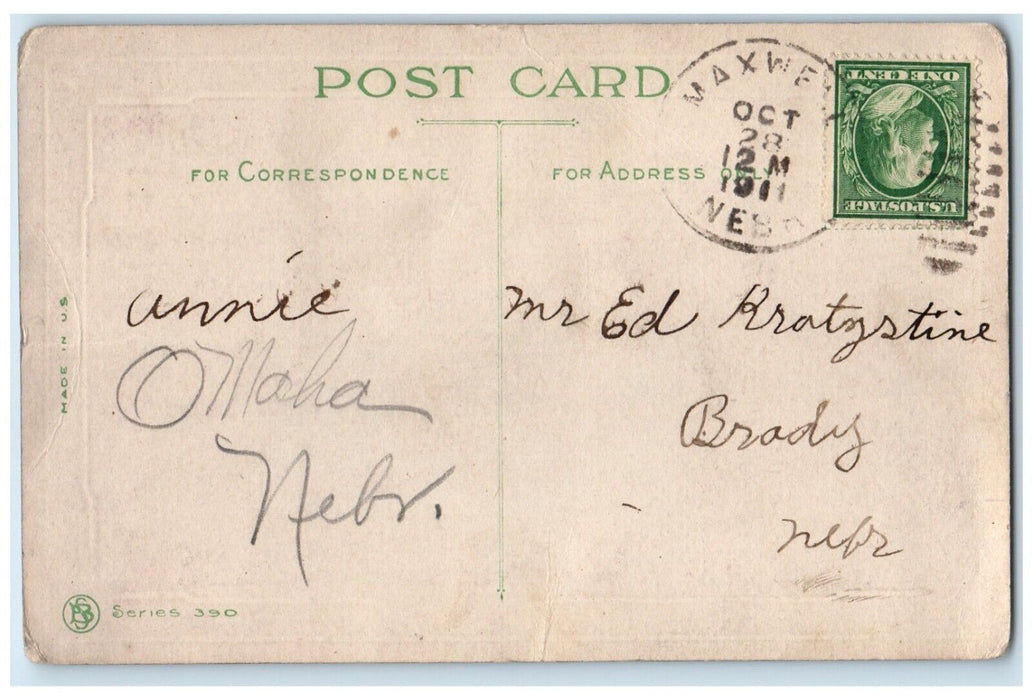 POST CARD
FOR CORRESPONDENCE
FOR ADDRESS ONLY
MAXWELL
OCT
28
12 M
1911
NEBR
ONE CENT
U.S. POSTAGE
annie
OMaha
Nebr.
Mr Ed Kratzstine
Brady
nebr
MADE IN U.S.
ASB
Series 390